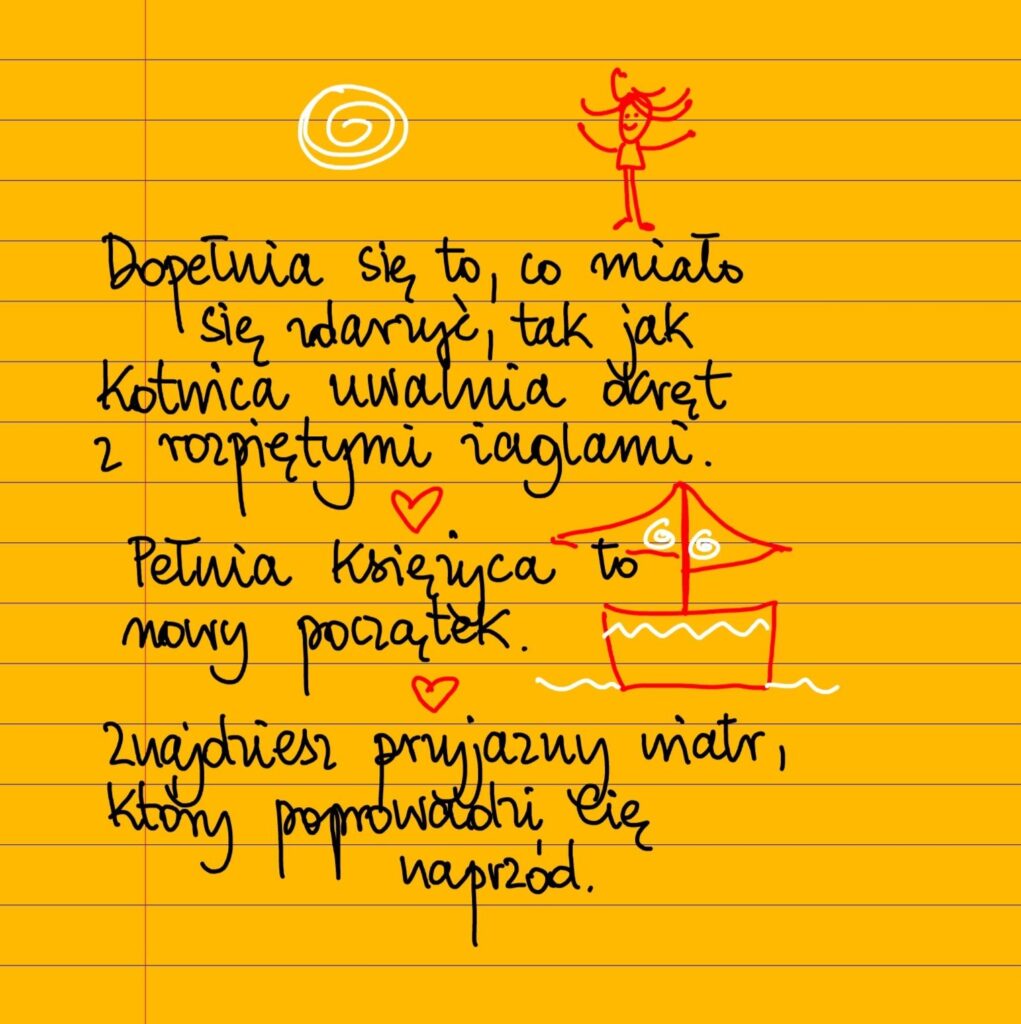 Dopełnia się to, co miało
się zdarzyć, tak jak
kotwica uwalnia okręt
z rozpiętymi żaglami.
Pełnia Księżyca to
nowy początek.
Znajdziesz przyjazny wiatr,
który poprowadzi Cię
naprzód.